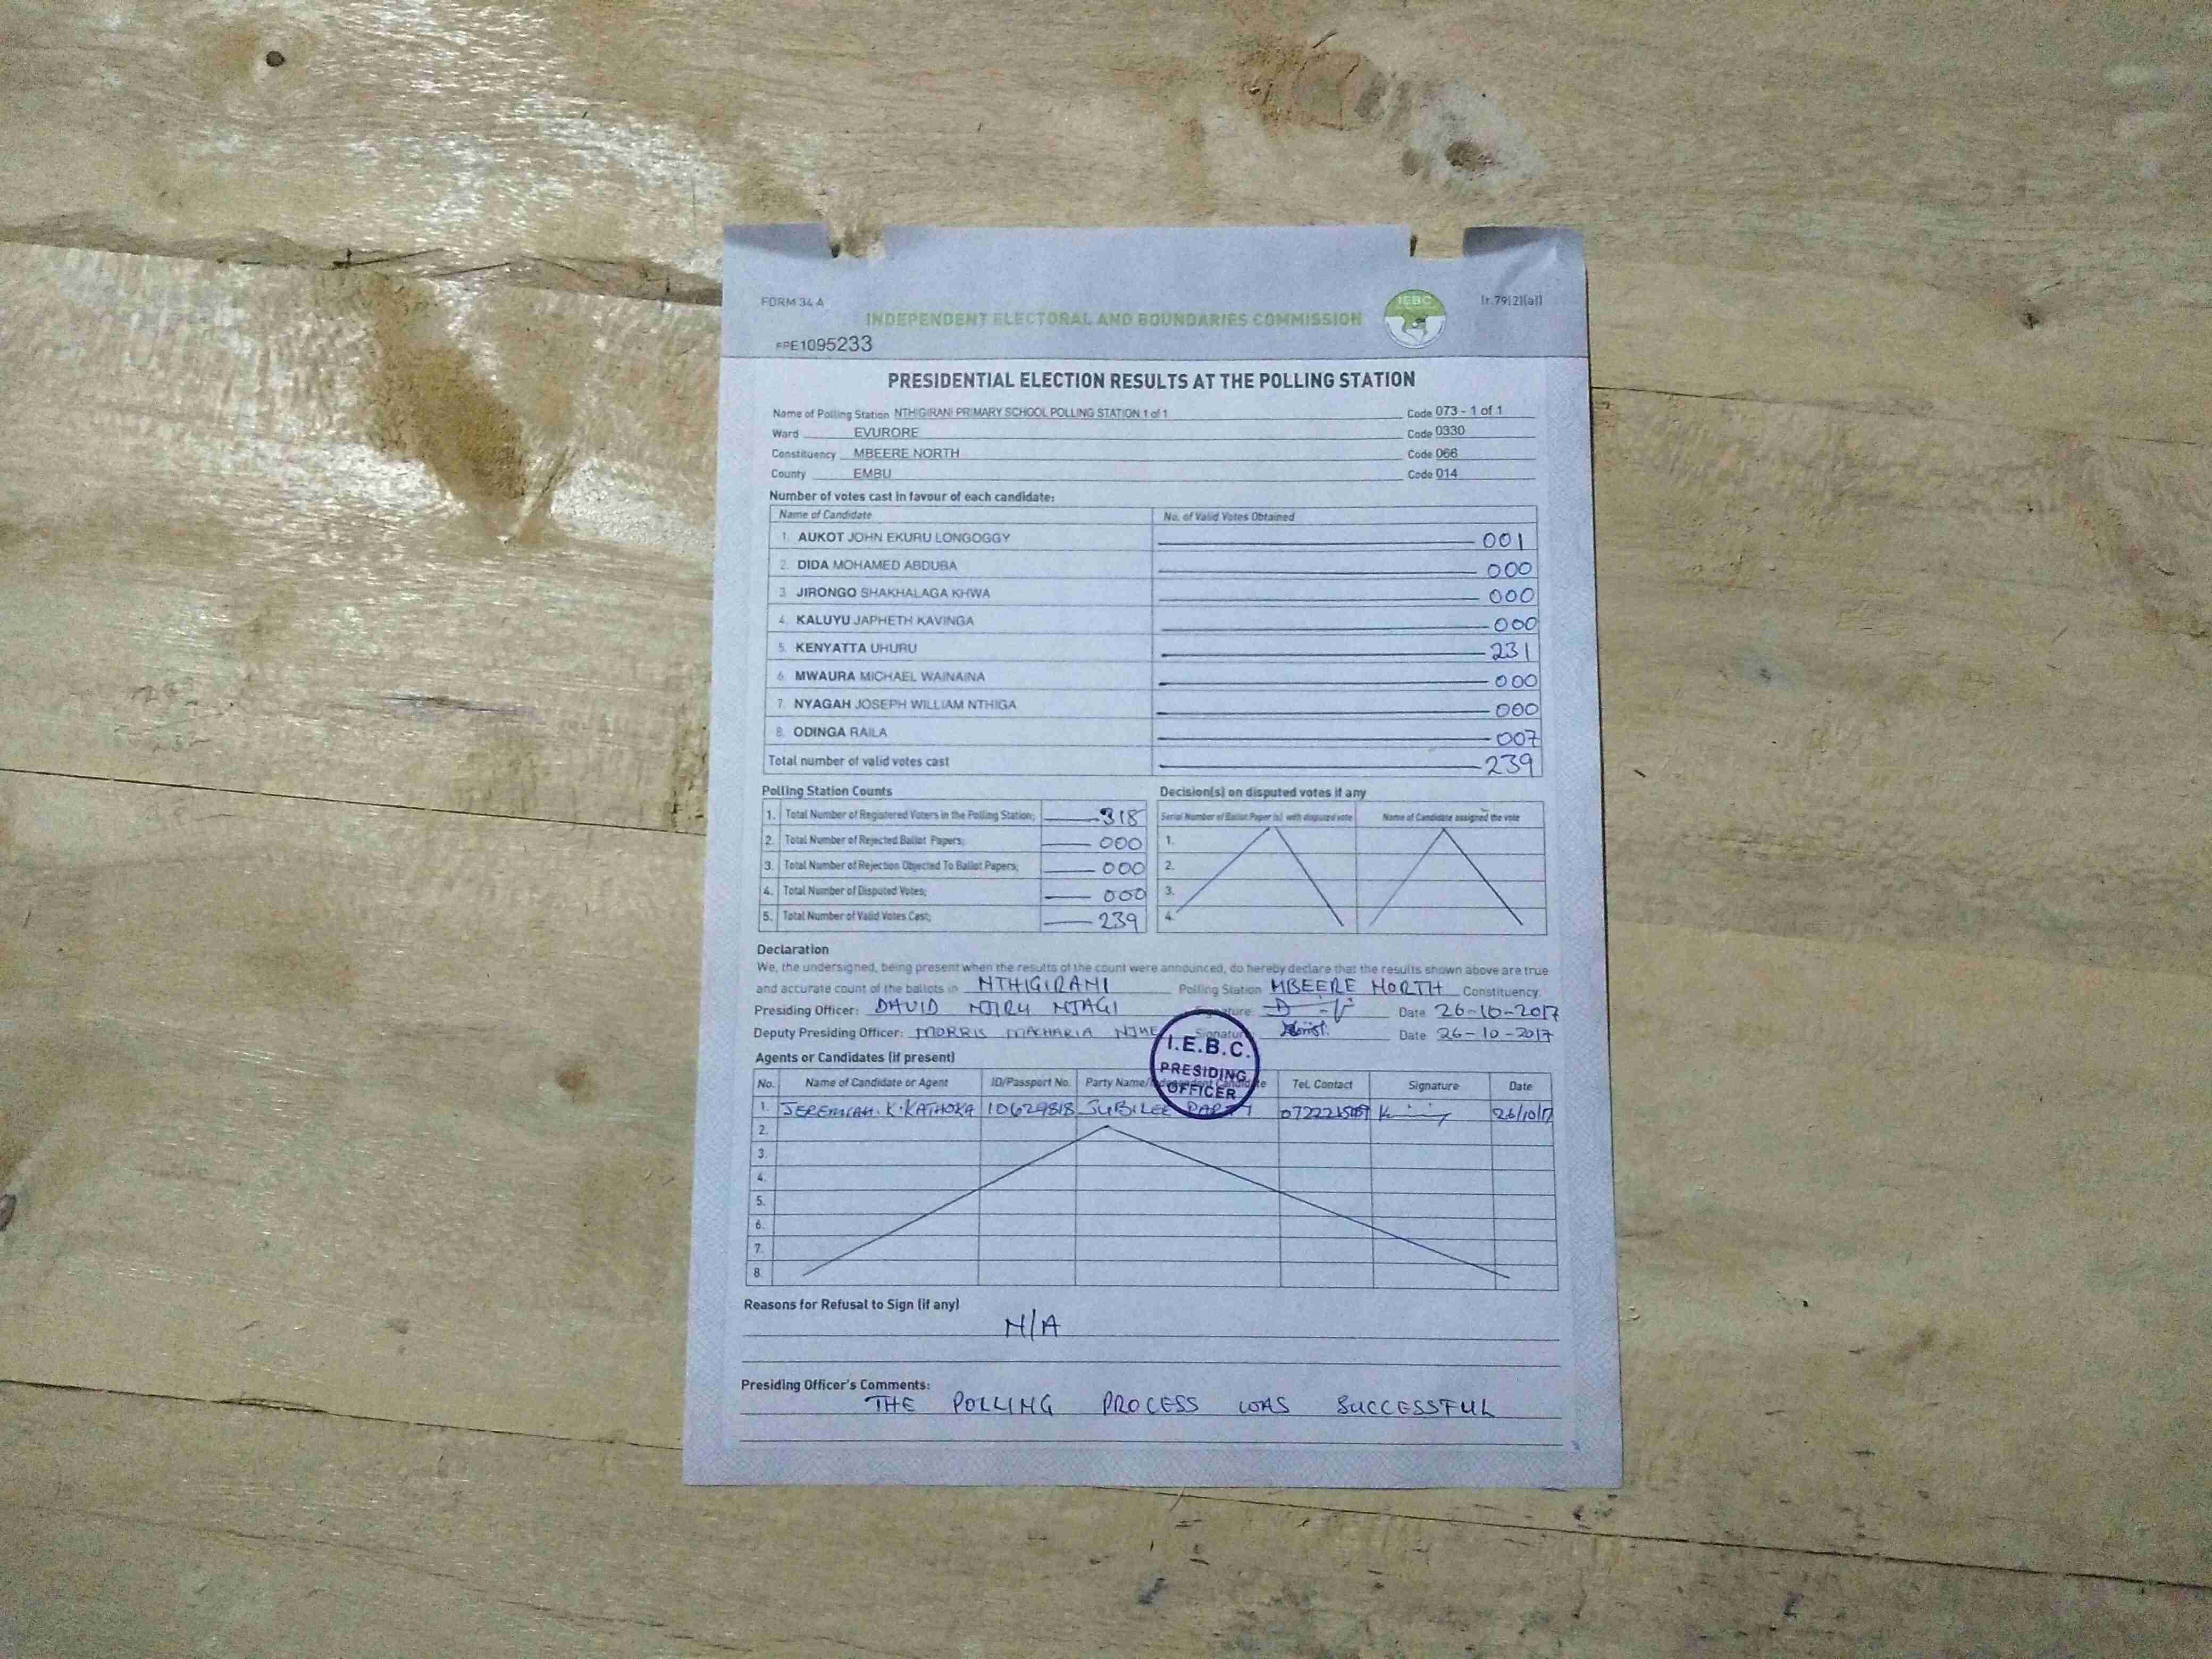 FORM 34 A
INDEPENDENT ELECTORAL AND BOUNDARIES COMMISSION
IEBC
[r.79(2)(a)]
PPE1095233
PRESIDENTIAL ELECTION RESULTS AT THE POLLING STATION
Name of Polling Station NTHIGIRANI PRIMARY SCHOOL POLLING STATION 1 of 1 Code 073 - 1 of 1
Ward EVURORE Code 0330
Constituency MBEERE NORTH Code 066
County EMBU Code 014
Number of votes cast in favour of each candidate:
Name of Candidate No. of Valid Votes Obtained
1. AUKOT JOHN EKURU LONGOGGY 001
2. DIDA MOHAMED ABDUBA 000
3. JIRONGO SHAKHALAGA KHWA 000
4. KALUYU JAPHETH KAVINGA 000
5. KENYATTA UHURU 231
6. MWAURA MICHAEL WAINAINA 000
7. NYAGAH JOSEPH WILLIAM NTHIGA 000
8. ODINGA RAILA 007
Total number of valid votes cast 239
Polling Station Counts
1. Total Number of Registered Voters in the Polling Station; 318
2. Total Number of Rejected Ballot Papers; 000
3. Total Number of Rejection Objected To Ballot Papers; 000
4. Total Number of Disputed Votes; 000
5. Total Number of Valid Votes Cast; 239
Decision(s) on disputed votes if any
Serial Number of Ballot Paper (s) with disputed vote Name of Candidate assigned the vote
1.
2.
3.
4.
Declaration
We, the undersigned, being present when the results of the count were announced, do hereby declare that the results shown above are true
and accurate count of the ballots in NTHIGIRANI Polling Station MBEERE NORTH Constituency.
Presiding Officer: DAVID NJIRU NJAGI Signature: Date 26-10-2017
Deputy Presiding Officer: MORRIS MACHARIA Signature Date 26-10-2017
I.E.B.C.
PRESIDING
OFFICER
Agents or Candidates (if present)
No. Name of Candidate or Agent ID/Passport No. Party Name/Independent Candidate Tel. Contact Signature Date
1. JEREMIAH. K. KATHOKA 10629818 JUBILEE PARTY 26/10/17
2.
3.
4.
5.
6.
7.
8.
Reasons for Refusal to Sign (if any)
N/A
Presiding Officer's Comments:
THE POLLING PROCESS WAS SUCCESSFUL